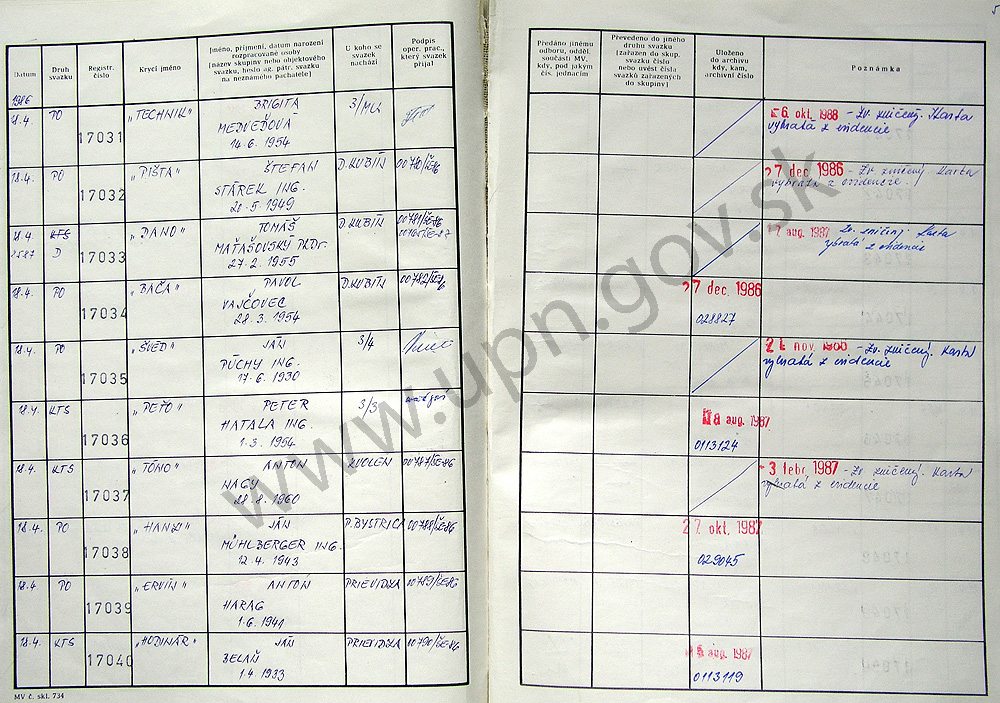 Datum
Druh svazku
Registr. číslo
Krycí jméno
Jméno, příjmení, datum narození
rozpracované osoby
(název skupiny nebo objektového
svazku, heslo ag. pátr. svazku
na neznámého pachatele)
U koho se svazek nachází
Podpis oper. prac., který svazek přijal
Předáno jinému odboru, odděl. součásti MV, kdy, pod jakým čís. jednacím
Převedeno do jiného druhu svazku (zařazen do skup. svazku číslo nebo uvést čísla svazků zařazených do skupiny)
Uloženo do archivu kdy, kam, archivní číslo
Poznámka
5
1986
18.4. PO 17031 "TECHNIK" BRIGITA 3/MIK
MEDVEĎOVÁ
14.6.1954
6. okt. 1988 - Zv. zničený. Karta
vybratá z evidencie
18.4. PO 17032 "PIŠTA" ŠTEFAN D.KUBÍN 00780/ŠE-86
STÁREK ING.
20.5.1949
27 dec. 1986 - Zv. zničený. Karta
vybratá z evidencie.
18.4. KTS 17033 "DANO" TOMÁŠ D.KUBÍN 00781/ŠE-86
D MAŤAŠOVSKÝ PhDr.
27.2.1955
aug. 1987 Zv. zničený. Karta
vybratá z evidencie
18.4. PO 17034 "BAČA" PAVOL D.KUBÍN 00782/ŠE-86
VAJČOVEC
28.3.1954
27 dec. 1986
028827
18.4. PO 17035 "ŠVÉD" JÁN 3/4
PÚCHY ING.
17.6.1930
nov. - Zv. zničený. Karta
vybratá z evidencie
18.4. KTS 17036 "PEŤO" PETER 3/3
HATALA ING.
1.3.1954
aug. 1987
0113124
18.4. KTS 17037 "TÓNO" ANTON ZVOLEN 00787/ŠE-86
NAGY
28.8.1960
3. febr. 1987 - Zv. zničený. Karta
vybratá z evidencie
18.4. PO 17038 "HANZI" JÁN P.BYSTRICA 00788/ŠE-86
MÜHLBERGER ING.
12.4.1943
27. okt. 1987
029045
18.4. PO 17039 "ERVÍN" ANTON PRIEVIDZA 00789/ŠE-86
HARAG
1.6.1941
18.4. KTS 17040 "HODINÁR" JÁN PRIEVIDZA 00790/ŠE-86
BELAŇ
1.4.1933
aug. 1987
0113119
MV č. skl. 734
www.upn.gov.sk